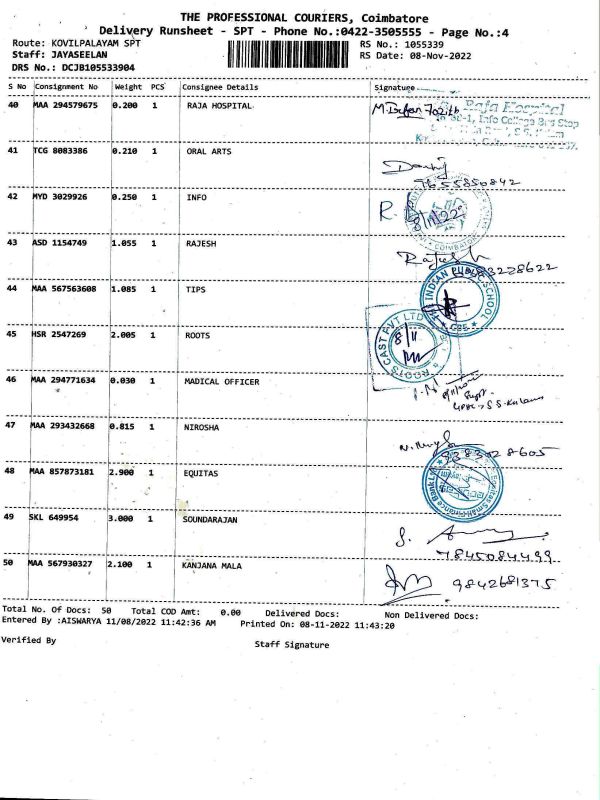 THE PROFESSIONAL COURIERS, Coimbatore
Delivery Runsheet - SPT - Phone No.:0422-3505555 - Page No.:4
Route: KOVILPALAYAM SPT RS No.: 1055339
Staff: JAYASEELAN RS Date: 08-Nov-2022
DRS No.: DCJB105533904
S No Consignment No Weight PCS Consignee Details Signature
40 MAA 294579675 0.200 1 RAJA HOSPITAL
Raja Hospital
Info College Bus Stop
41 TCG 8083386 0.210 1 ORAL ARTS
7655850842
42 MYD 3029926 0.250 1 INFO
8/11/22
COIMBATORE
43 ASD 1154749 1.055 1 RAJESH
Rajesh
44 MAA 567563608 1.085 1 TIPS
THE INDIAN PUBLIC SCHOOL
CBE
45 HSR 2547269 2.005 1 ROOTS
ROOTS CAST PVT LTD
8/11
46 MAA 294771634 0.030 1 MADICAL OFFICER
47 MAA 293432668 0.815 1 NIROSHA
9383028605
48 MAA 857873181 2.900 1 EQUITAS
Equitas Small Finance Bank Ltd
49 SKL 649954 3.000 1 SOUNDARAJAN
7845084499
50 MAA 567930327 2.100 1 KANJANA MALA
9842681375
Total No. Of Docs: 50 Total COD Amt: 0.00 Delivered Docs: Non Delivered Docs:
Entered By :AISWARYA 11/08/2022 11:42:36 AM Printed On: 08-11-2022 11:43:20
Verified By Staff Signature